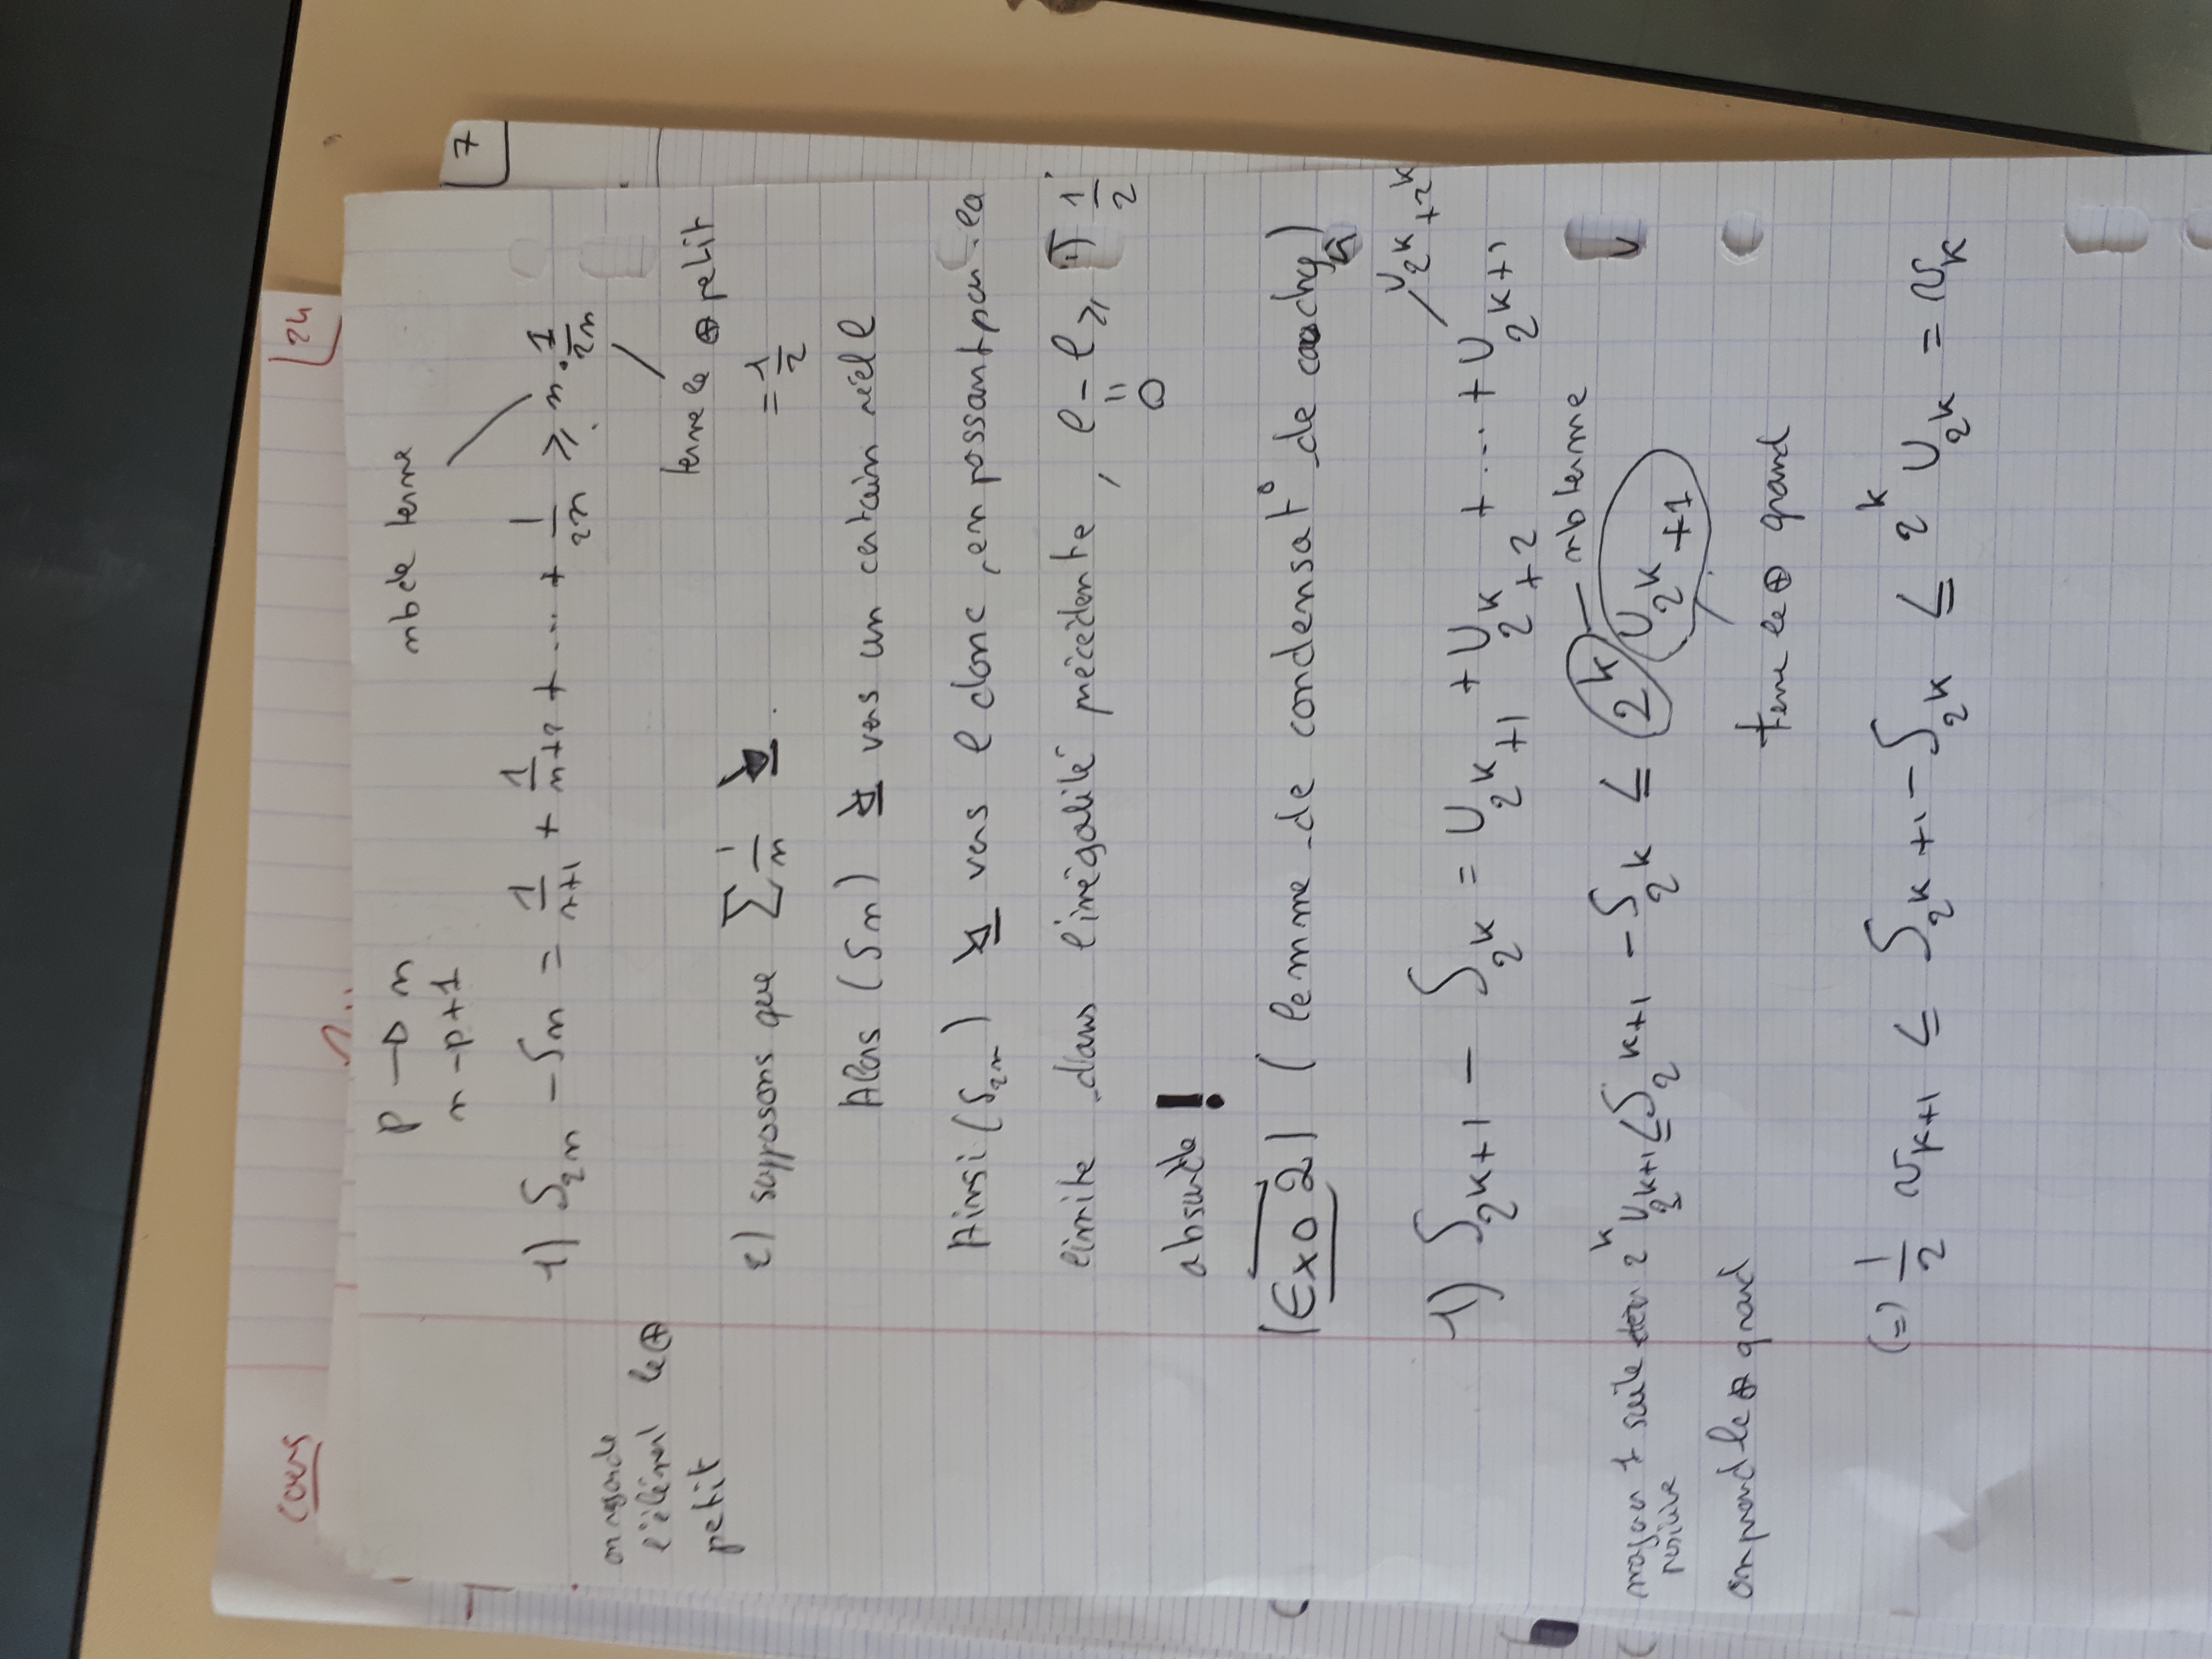 cours
24
7
p → n
nb de terme
n-p+1
1) S_2n - S_n = 1/(n+1) + 1/(n+2) + ... + 1/2n ≥ n · 1/2n
l'élément le ⊕
petit
terme le ⊕ petit
= 1/2
2) supposons que Σ 1/n ↘.
Alors (Sn) ↘ vers un certain réel l
Ainsi (S_2n) ↘ vers l donc, en passant par la
limite dans l'inégalité précédente, l - l ≥ 1/2.
= 0
absurde !
Exo 2 (lemme de condensat° de cauchy)
U_{2^k + 2^k}
1) S_{2^{k+1}} - S_{2^k} = U_{2^k+1} + U_{2^k+2} + ... + U_{2^{k+1}}
nb terme
2^k U_{2^{k+1}} ≤ S_{2^{k+1}} - S_{2^k} ≤ 2^k U_{2^k+1}
positive
on prend le ⊕ grand
terme le ⊕ grand
(=) 1/2 v_{k+1} ≤ S_{2^{k+1}} - S_{2^k} ≤ 2^k U_{2^k} = v_k